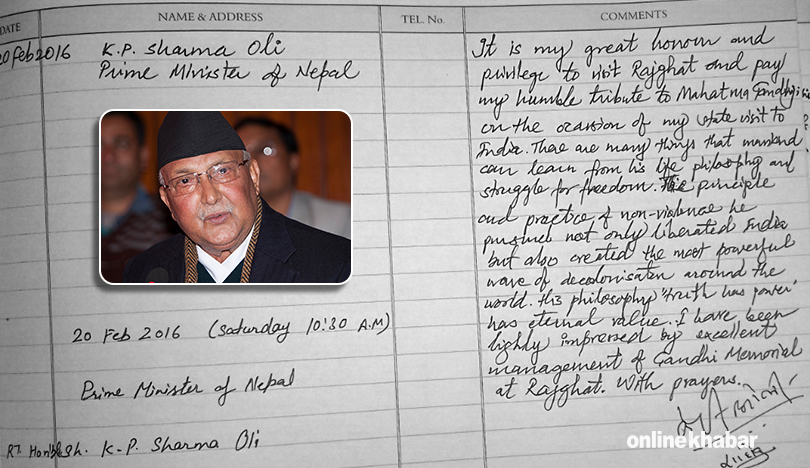 DATE
NAME & ADDRESS
TEL. No.
COMMENTS
20 Feb 2016
K.P. Sharma Oli
Prime Minister of Nepal
It is my great honour and
privilege to visit Rajghat and pay
my humble tribute to Mahatma Gandhiji
on the ocassion of my state visit to
India. There are many things that mankind
can learn from his life philosophy and
struggle for freedom. The principle
and practice of non-violence he
pursued not only liberated India
but also created the most powerful
wave of decolonisation around the
world. His philosophy 'truth has power'
has eternal value. I have been
highly impressed by excellent
management of Gandhi Memorial
at Rajghat. With prayers.
20 Feb 2016 (Saturday 10:30 A.M)
Prime Minister of Nepal
RT. Honble Sh. K-P Sharma Oli
onlinekhabar